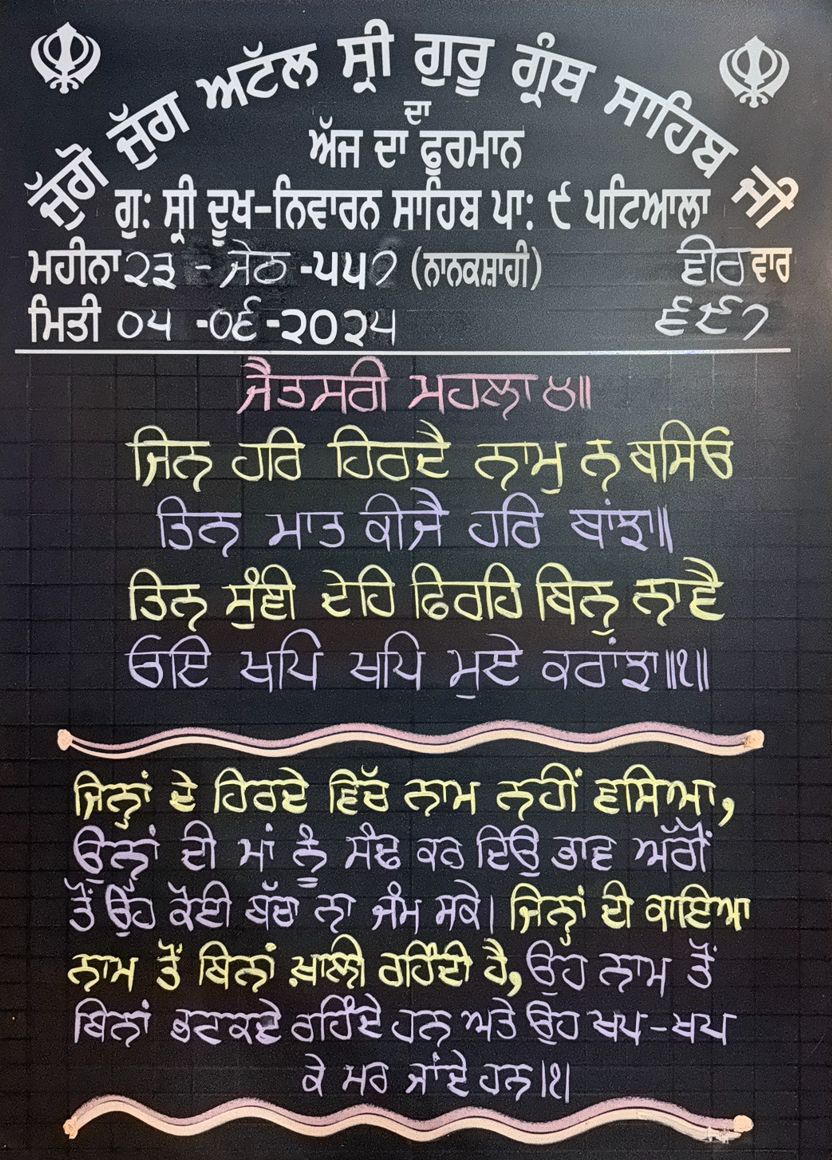 ਜੁੱਗੋ ਜੁੱਗ ਅਟੱਲ ਸ੍ਰੀ ਗੁਰੂ ਗ੍ਰੰਥ ਸਾਹਿਬ ਜੀ
ਦਾ
ਅੱਜ ਦਾ ਫੁਰਮਾਨ
ਗੁ: ਸ੍ਰੀ ਦੂਖ-ਨਿਵਾਰਨ ਸਾਹਿਬ ਪਾ: ੯ ਪਟਿਆਲਾ
ਮਹੀਨਾ ੨੩ - ਜੇਠ -੫੫੭ (ਨਾਨਕਸ਼ਾਹੀ) ਵੀਰਵਾਰ
ਮਿਤੀ ੦੫ -੦੬-੨੦੨੫ ੬੯੭
ਜੈਤਸਰੀ ਮਹਲਾ ੪॥
ਜਿਨ ਹਰਿ ਹਿਰਦੈ ਨਾਮੁ ਨ ਬਸਿਓ
ਤਿਨ ਮਾਤ ਕੀਜੈ ਹਰਿ ਬਾਂਝਾ॥
ਤਿਨ ਸੁੰਞੀ ਦੇਹ ਫਿਰਹਿ ਬਿਨੁ ਨਾਵੈ
ਓਇ ਖਪਿ ਖਪਿ ਮੁਏ ਕਰਾਂਝਾ॥੧॥
ਜਿਨ੍ਹਾਂ ਦੇ ਹਿਰਦੇ ਵਿੱਚ ਨਾਮ ਨਹੀਂ ਵਸਿਆ,
ਉਨ੍ਹਾਂ ਦੀ ਮਾਂ ਨੂੰ ਸੰਢ ਕਰ ਦਿਉ ਭਾਵ ਅੱਗੋਂ
ਤੋਂ ਉਹ ਕੋਈ ਬੱਚਾ ਨਾ ਜੰਮ ਸਕੇ। ਜਿਨ੍ਹਾਂ ਦੀ ਕਾਇਆ
ਨਾਮ ਤੋਂ ਬਿਨਾਂ ਖ਼ਾਲੀ ਰਹਿੰਦੀ ਹੈ, ਉਹ ਨਾਮ ਤੋਂ
ਬਿਨਾਂ ਭਟਕਦੇ ਰਹਿੰਦੇ ਹਨ ਅਤੇ ਉਹ ਖਪ-ਖਪ
ਕੇ ਮਰ ਜਾਂਦੇ ਹਨ।੧।